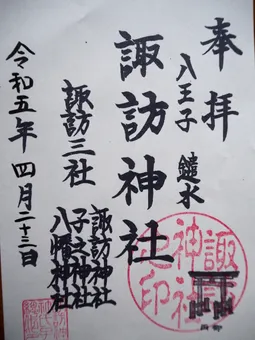 奉拝
八王子 鑓水
諏訪神社
諏訪三社
諏訪神社
子之神社
八幡神社
令和五年四月二十三日
諏訪
神社
之印